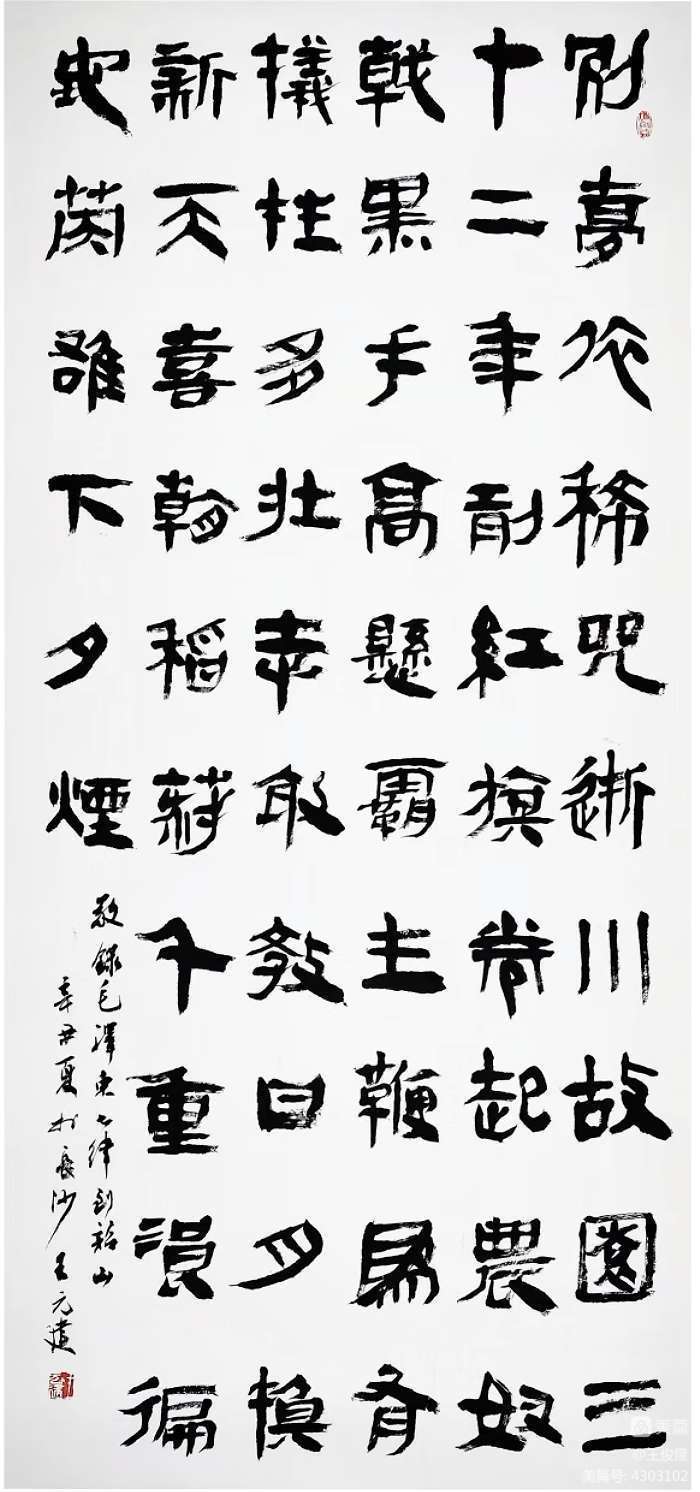 別夢依稀咒逝川故園三
十二年前紅旗卷起農奴
戟黑手高懸霸主鞭為有
犧牲多壯志敢教日月換
新天喜看稻菽千重浪遍
地英雄下夕煙
敬錄毛澤東七律到韶山
辛丑夏於長沙王元
美篇
美篇号: 4303102